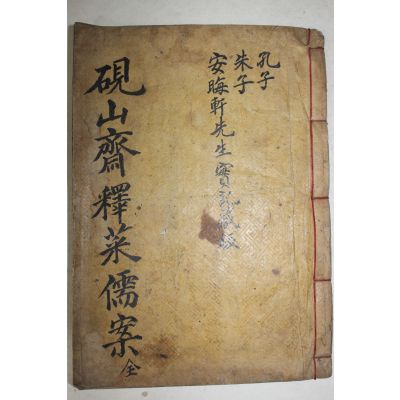 孔子
朱子
安晦軒先生實記藏板
硯山齋釋菜儒案 全